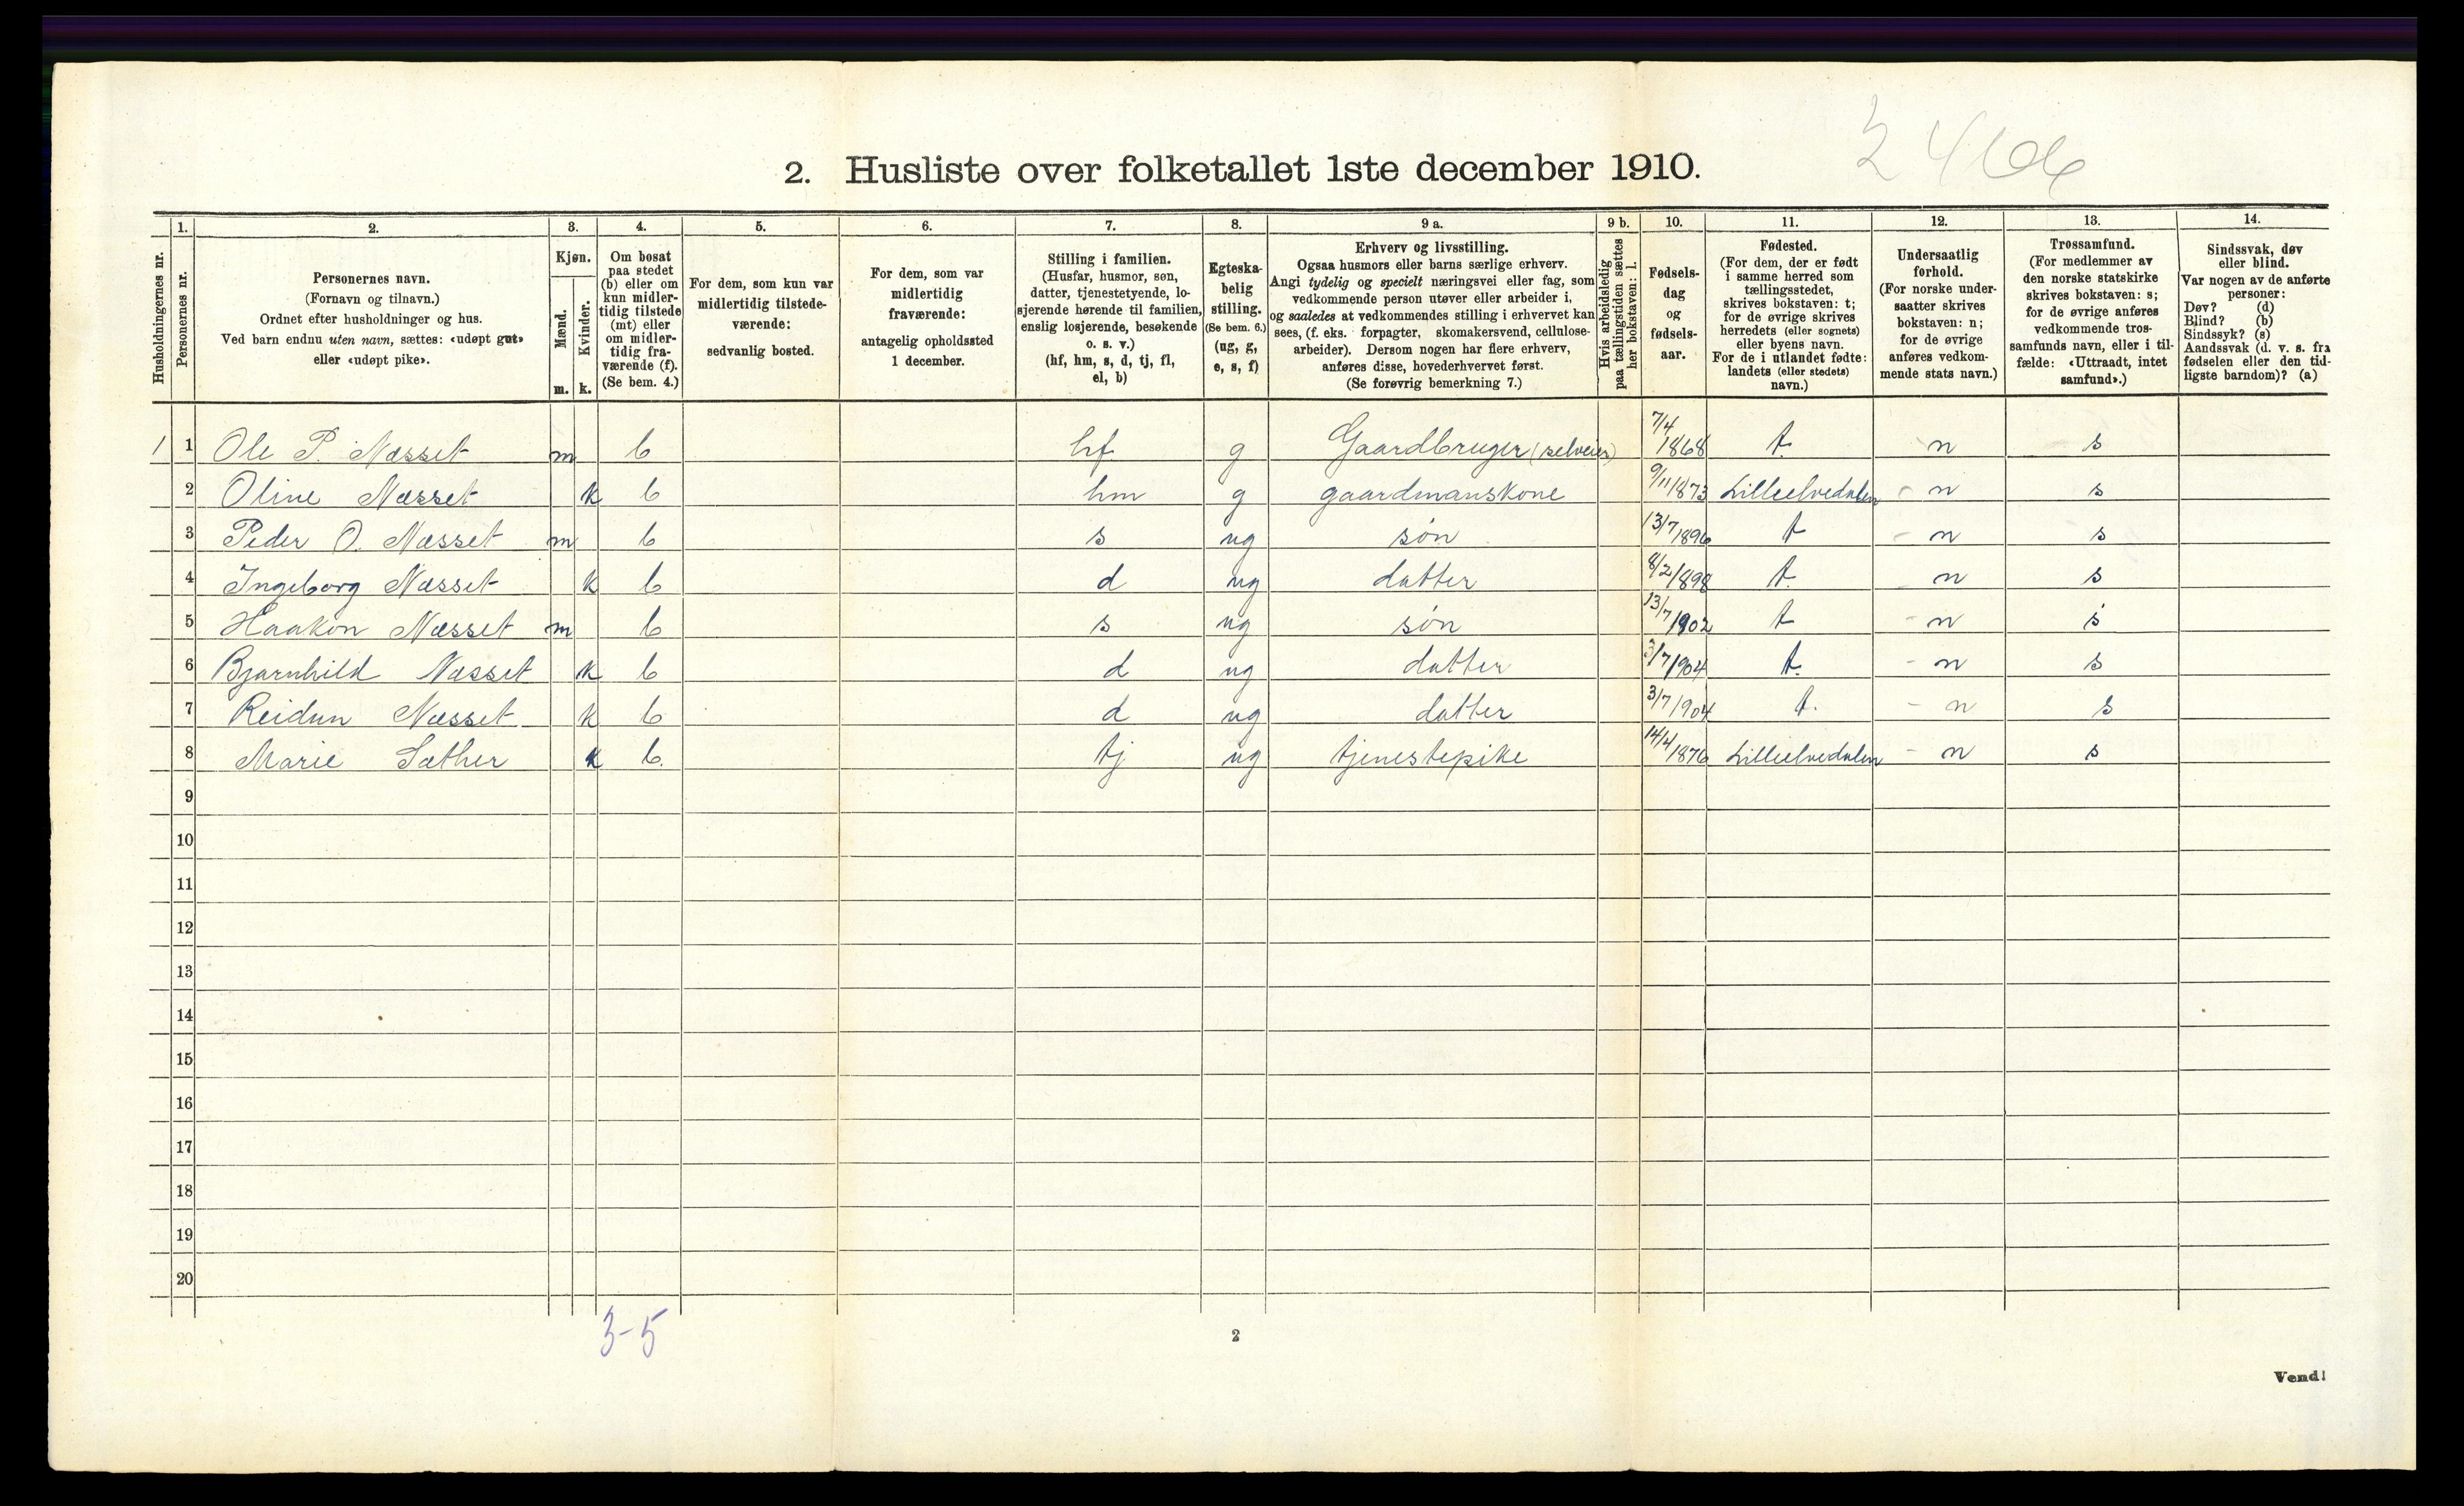 2. Husliste over folketallet 1ste december 1910.
Husholdningernes nr.
1.
Personernes nr.
2.
Personernes navn.
(Fornavn og tilnavn.)
Ordnet efter husholdninger og hus.
Ved barn endnu uten navn, sættes: «udøpt gut»
eller «udøpt pike».
3.
Kjøn.
Mænd.
m.
Kvinder.
k.
4.
Om bosat
paa stedet
(b) eller om
kun midler-
tidig tilstede
(mt) eller
om midler-
tidig fra-
værende (f).
(Se bem. 4.)
5.
For dem, som kun var
midlertidig tilstede-
værende:
sedvanlig bosted.
6.
For dem, som var
midlertidig
fraværende:
antagelig opholdssted
1 december.
7.
Stilling i familien.
(Husfar, husmor, søn,
datter, tjenestetyende, lo-
sjerende hørende til familien,
enslig losjerende, besøkende
o. s. v.)
(hf, hm, s, d, tj, fl,
el, b)
8.
Egteska-
belig
stilling.
(Se bem. 6.)
(ug, g,
e, s, f)
9 a.
Erhverv og livsstilling.
Ogsaa husmors eller barns særlige erhverv.
Angi tydelig og specielt næringsvei eller fag, som
vedkommende person utøver eller arbeider i,
og saaledes at vedkommendes stilling i erhvervet kan
sees, (f. eks. forpagter, skomakersvend, cellulose-
arbeider). Dersom nogen har flere erhverv,
anføres disse, hovederhvervet først.
(Se forøvrig bemerkning 7.)
9 b.
Hvis arbeidsledig
paa tællingstiden sættes
her bokstaven: l.
10.
Fødsels-
dag
og
fødsels-
aar.
11.
Fødested.
(For dem, der er født
i samme herred som
tællingsstedet,
skrives bokstaven: t;
for de øvrige skrives
herredets (eller sognets)
eller byens navn.
For de i utlandet fødte:
landets (eller stedets)
navn.)
12.
Undersaatlig
forhold.
(For norske under-
saatter skrives
bokstaven: n;
for de øvrige
anføres vedkom-
mende stats navn.)
13.
Trossamfund.
(For medlemmer av
den norske statskirke
skrives bokstaven: s;
for de øvrige anføres
vedkommende tros-
samfunds navn, eller i til-
fælde: «Uttraadt, intet
samfund».)
14.
Sindssvak, døv
eller blind.
Var nogen av de anførte
personer:
Døv? (d)
Blind? (b)
Sindssyk? (s)
Aandssvak (d. v. s. fra
fødselen eller den tid-
ligste barndom)? (a)
1 1 Ole P. Næsset m b hf g Gaardbruger (selveier) 7/4 1868 t. n s
2 Oline Næsset k b hm g gaardmanskone 9/11 1873 Lilleelvedalen - n s
3 Peder O. Næsset m b s ug søn 13/7 1896 t - n s
4 Ingeborg Næsset k b d ug datter 8/2 1898 t. n s
5 Haakon Næsset m b s ug søn 13/7 1902 t - n s
6 Bjarnhild Næsset k b d ug datter 3/7 1904 t. - n s
7 Reidun Næsset k b d ug datter 3/7 1904 t. - n s
8 Marie Sæther k b. tj ug tjenestepike 14/4 1876 Lilleelvedalen - n s
9
10
11
12
13
14
15
16
17
18
19
20
3-5
2
Vend!